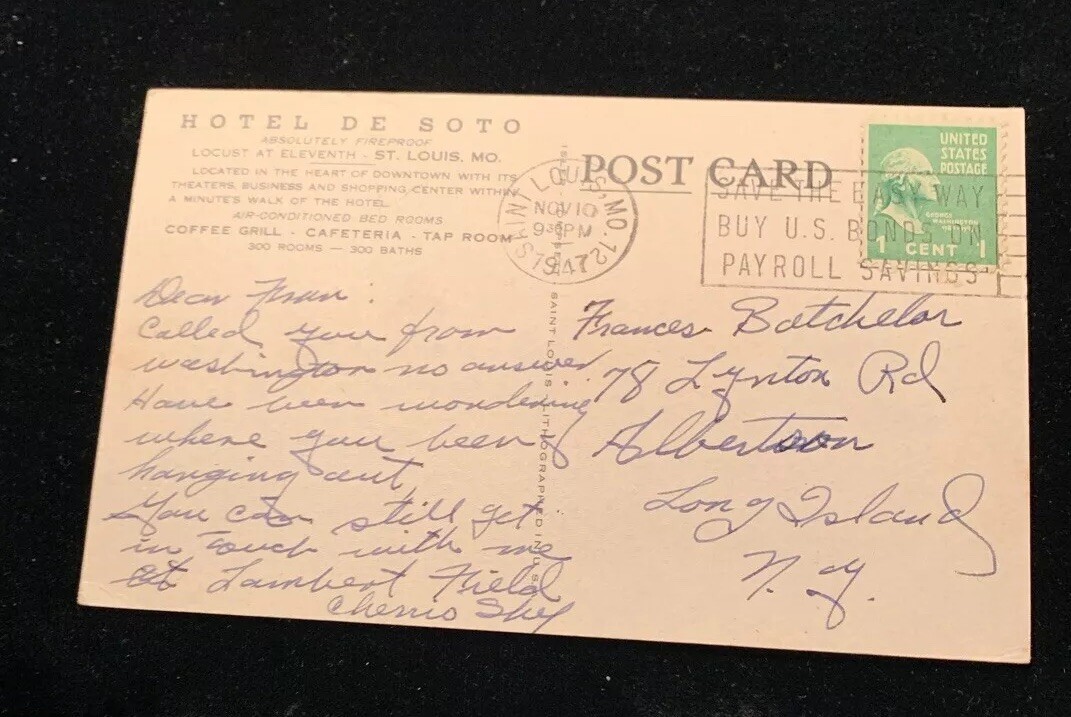 HOTEL DE SOTO
ABSOLUTELY FIREPROOF
LOCUST AT ELEVENTH - ST. LOUIS, MO.
LOCATED IN THE HEART OF DOWNTOWN WITH ITS
THEATERS, BUSINESS AND SHOPPING CENTER WITHIN
A MINUTE'S WALK OF THE HOTEL
AIR-CONDITIONED BED ROOMS
COFFEE GRILL - CAFETERIA - TAP ROOM
300 ROOMS — 300 BATHS
POST CARD
SAINT LOUIS, MO. 7
NOV 10
9 30 PM
1947
SAVE THE EASY WAY
BUY U.S. BONDS ON
PAYROLL SAVINGS
UNITED
STATES
POSTAGE
GEORGE
WASHINGTON
1 CENT 1
Dear Fran:
Called you from
washington no answer.
Have been wondering
where you been
hanging out,
You can still get
in touch with me
at Lambert Field
Cherio
Frances Batchelor
78 Lynton Rd
Albertson
Long Island
N.Y.
SAINT LOUIS LITHOGRAPHED IN U.S.